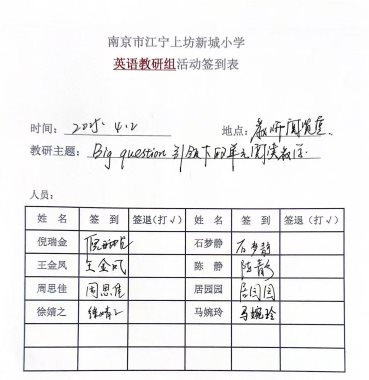 南京市江宁上坊新城小学
英语教研组活动签到表
时间: 2025.4.2 地点: 教研阅览室
教研主题: Big question引领下的单元阅读教学.
人员:
姓 名 签 到 签退(打√) 姓 名 签 到 签退(打√)
倪瑞金 倪瑞金 石梦静 石梦静
王金凤 王金凤 陈 静 陈静
周思佳 周思佳 居园园 居园园
徐婧之 徐婧之 马婉玲 马婉玲